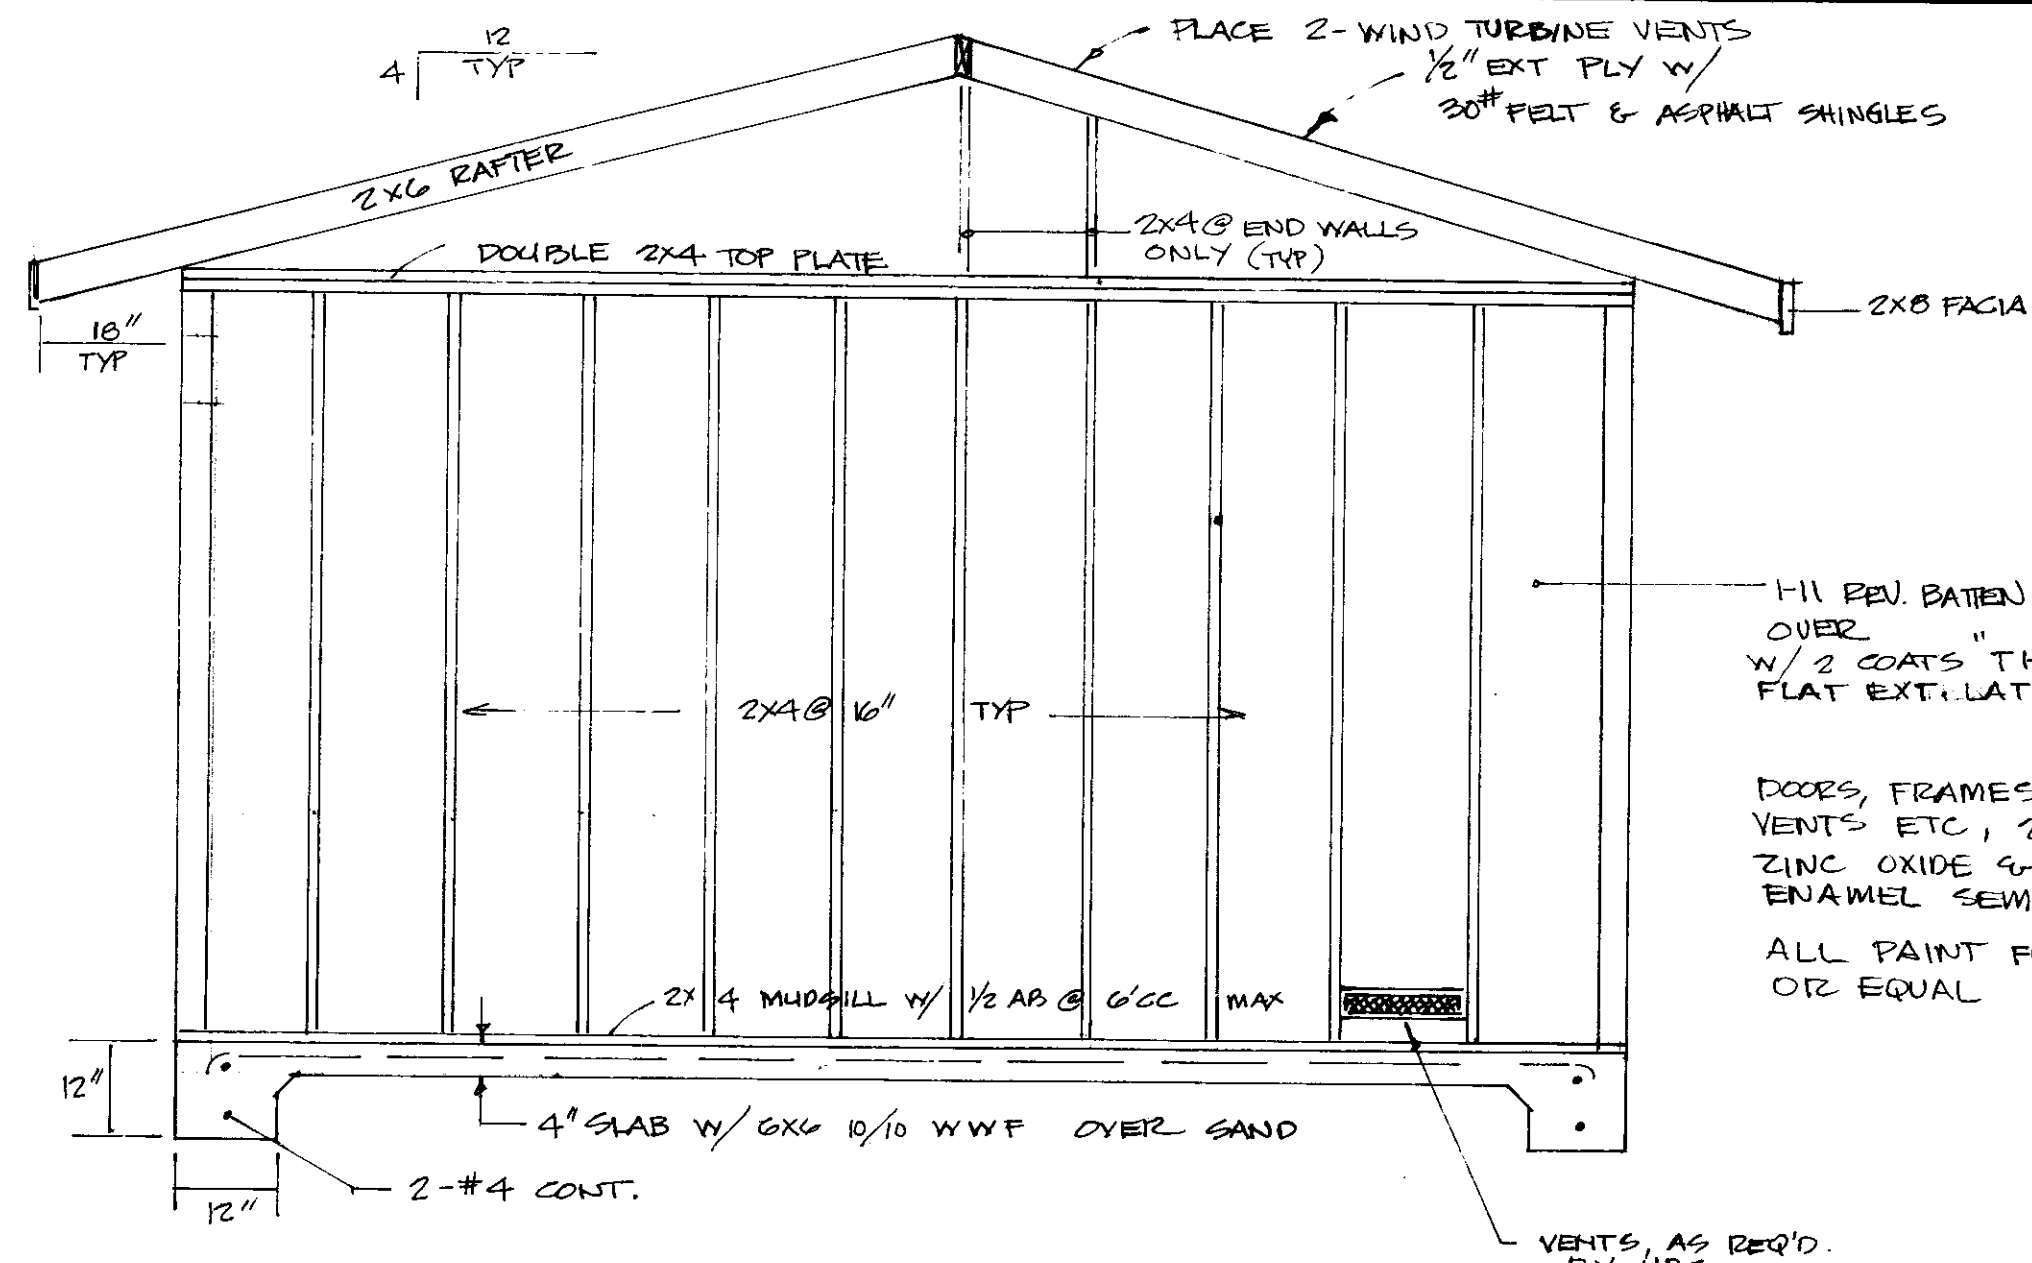 12
4 TYP
PLACE 2-WIND TURBINE VENTS
1/2" EXT PLY W/
30# FELT & ASPHALT SHINGLES
2X6 RAFTER
2X4 @ END WALLS
ONLY (TYP)
DOUBLE 2X4 TOP PLATE
2X8 FACIA
18"
TYP
1-11 REV. BATTEN
OVER "
W/ 2 COATS "TH
FLAT EXT. LAT
2X4 @ 16" TYP
DOORS, FRAMES
VENTS ETC, 2
ZINC OXIDE &
ENAMEL SEM
ALL PAINT F
OR EQUAL
2X4 MUDSILL W/ 1/2 AB @ 6'CC MAX
12"
4" SLAB W/ 6X6 10/10 WWF OVER SAND
2-#4 CONT.
12"
VENTS, AS REQ'D.